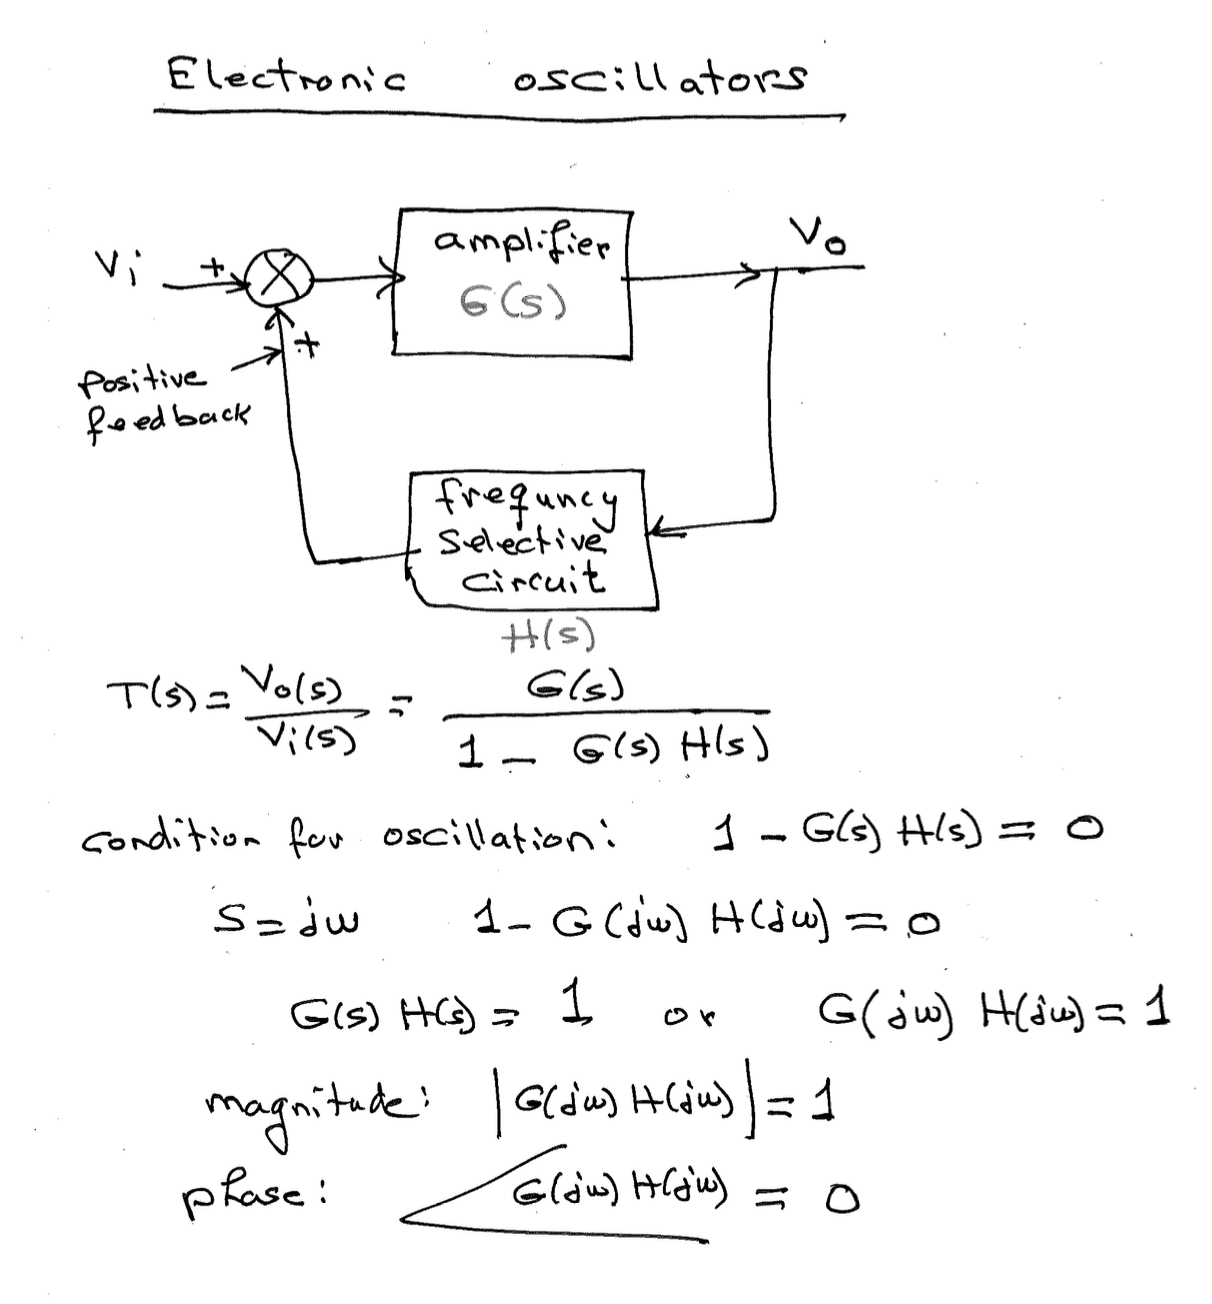 Electronic oscillators
Vi + amplifier Vo
G(s)
+
Positive
feedback
frequncy
selective
circuit
H(s)
T(s) = Vo(s) / Vi(s) = G(s) / 1 - G(s) H(s)
condition for oscillation: 1 - G(s) H(s) = 0
S = jw 1 - G(jw) H(jw) = 0
G(s) H(s) = 1 or G(jw) H(jw) = 1
magnitude: |G(jw) H(jw)| = 1
phase: ∠G(jw) H(jw) = 0